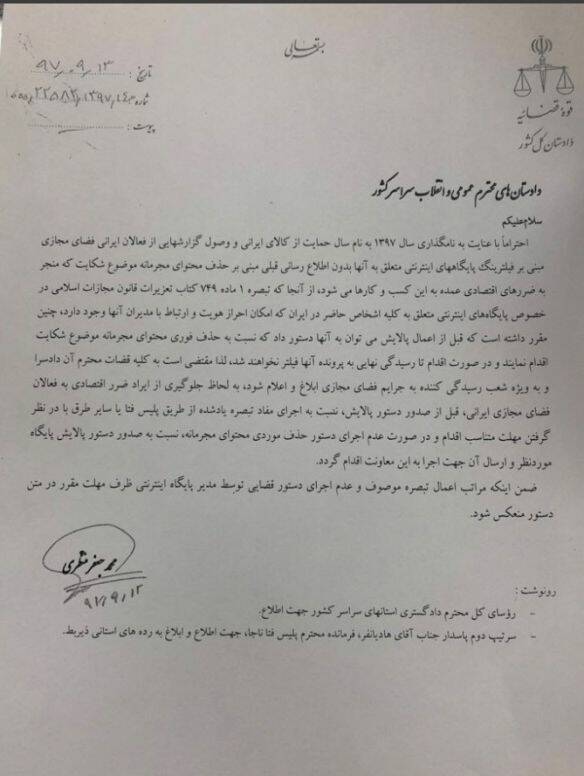 بسمه تعالی
قوه قضائیه
دادستان کل کشور
تاریخ : ۹۷.۹.۱۳
شماره :
پیوست :
دادستان های محترم عمومی و انقلاب سراسر کشور
سلام علیکم
احتراماً با عنایت به نامگذاری سال ۱۳۹۷ به نام سال حمایت از کالای ایرانی و وصول گزارشهایی از فعالان ایرانی فضای مجازی
مبنی بر فیلترینگ پایگاههای اینترنتی متعلق به آنها بدون اطلاع رسانی قبلی مبنی بر حذف محتوای مجرمانه موضوع شکایت که منجر
به ضررهای اقتصادی عمده به این کسب و کارها می شود، از آنجا که تبصره ۱ ماده ۷۴۹ کتاب تعزیرات قانون مجازات اسلامی در
خصوص پایگاه‌های اینترنتی متعلق به کلیه اشخاص حاضر در ایران که امکان احراز هویت و ارتباط با مدیران آنها وجود دارد، چنین
مقرر داشته است که قبل از اعمال پالایش می توان به آنها دستور داد که نسبت به حذف فوری محتوای مجرمانه موضوع شکایت
اقدام نمایند و در صورت اقدام تا رسیدگی نهایی به پرونده آنها فیلتر نخواهند شد، لذا مقتضی است به کلیه قضات محترم آن دادسرا
و به ویژه شعب رسیدگی کننده به جرایم فضای مجازی ابلاغ و اعلام شود، به لحاظ جلوگیری از ایراد ضرر اقتصادی به فعالان
فضای مجازی ایرانی، قبل از صدور دستور پالایش، نسبت به اجرای مفاد تبصره یادشده از طریق پلیس فتا یا سایر طرق با در نظر
گرفتن مهلت متناسب اقدام و در صورت عدم اجرای دستور حذف موردی محتوای مجرمانه، نسبت به صدور دستور پالایش پایگاه
موردنظر و ارسال آن جهت اجرا به این معاونت اقدام گردد.
ضمن اینکه مراتب اعمال تبصره موصوف و عدم اجرای دستور قضایی توسط مدیر پایگاه اینترنتی ظرف مهلت مقرر در متن
دستور منعکس شود.
محمد جعفر منتظری
۹۷/۹/۱۲
رونوشت :
- رؤسای کل محترم دادگستری استانهای سراسر کشور جهت اطلاع.
- سرتیپ دوم پاسدار جناب آقای هادیانفر، فرمانده محترم پلیس فتا ناجا، جهت اطلاع و ابلاغ به رده های استانی ذیربط.